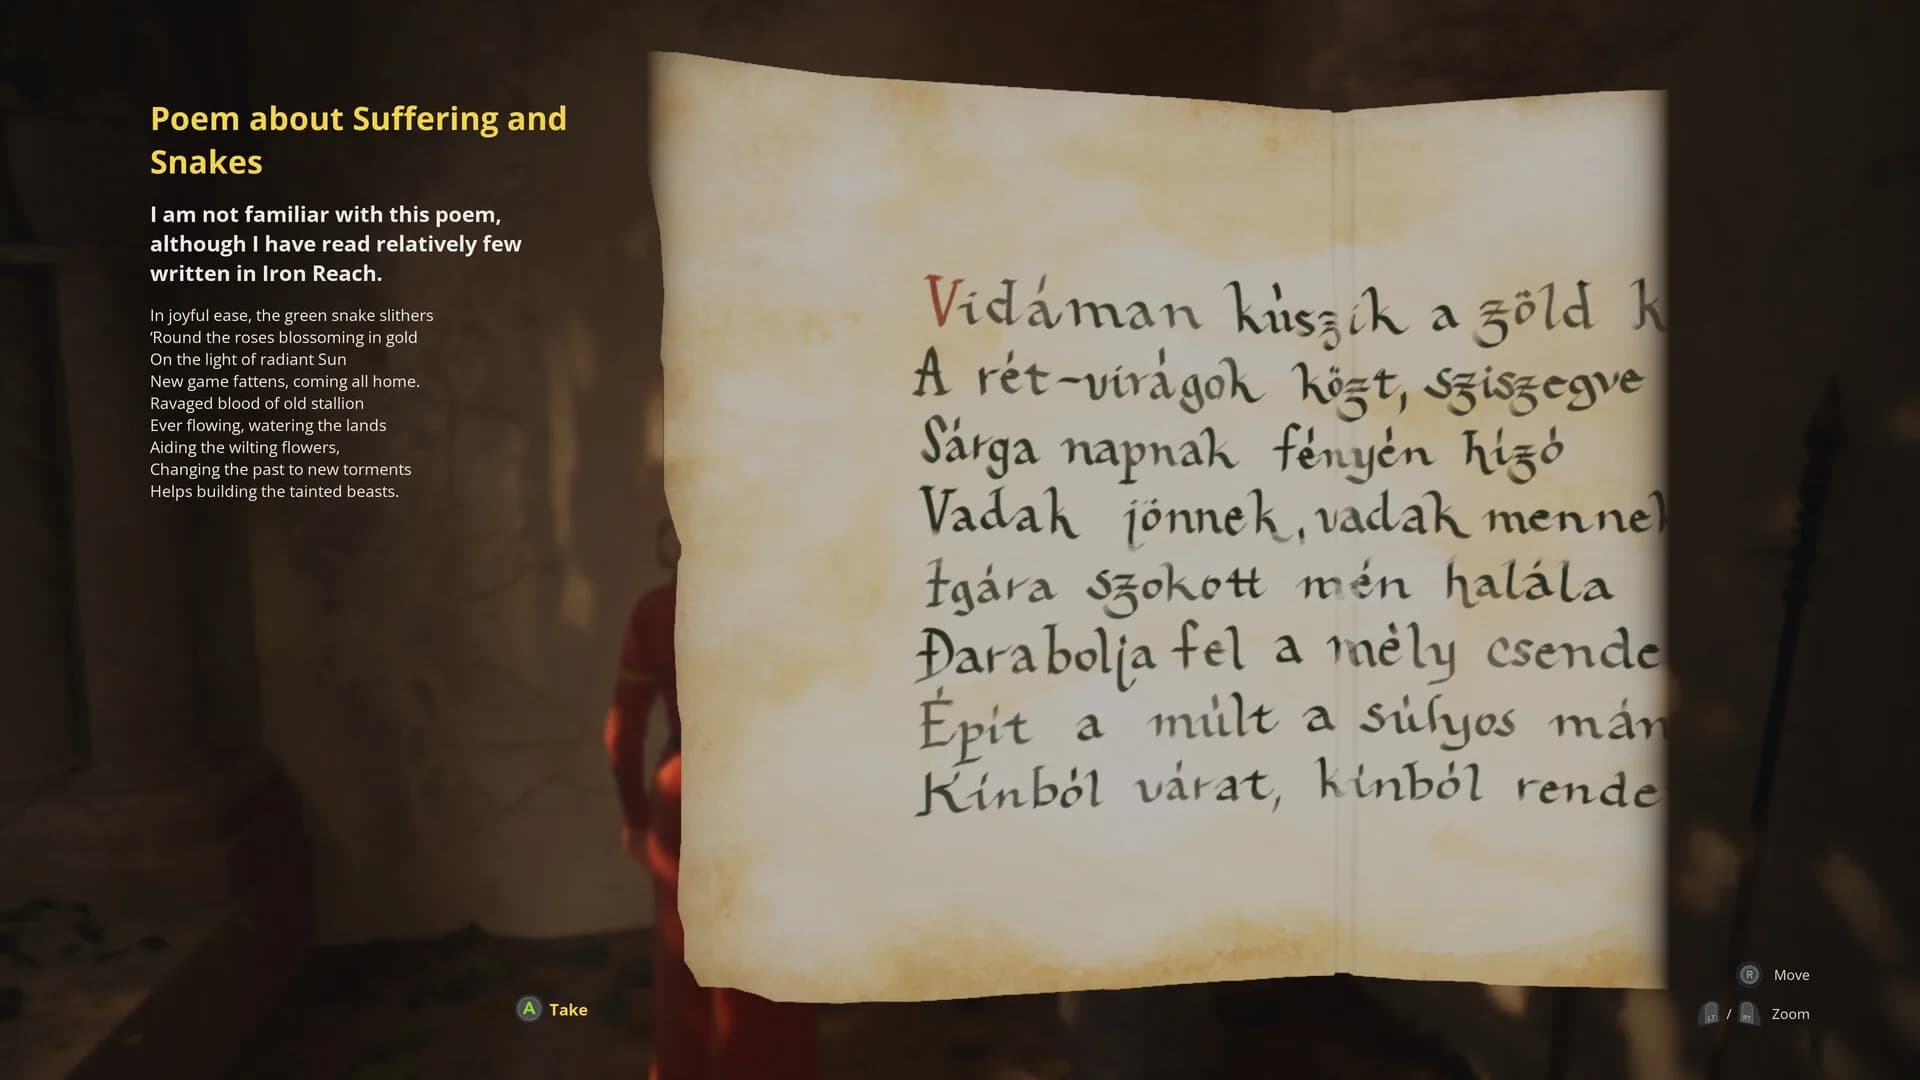 Poem about Suffering and
Snakes
I am not familiar with this poem,
although I have read relatively few
written in Iron Reach.
In joyful ease, the green snake slithers
‘Round the roses blossoming in gold
On the light of radiant Sun
New game fattens, coming all home.
Ravaged blood of old stallion
Ever flowing, watering the lands
Aiding the wilting flowers,
Changing the past to new torments
Helps building the tainted beasts.
Vidáman kúszik a zöld
A rét-virágok közt, sziszegve
Sárga napnak fényén hízó
Vadak jönnek, vadak
Igára szokott mén halála
Darabolja fel a mély
Épít a múlt a súlyos
Kínból várat, kínból
A Take
R Move
LT / RT Zoom